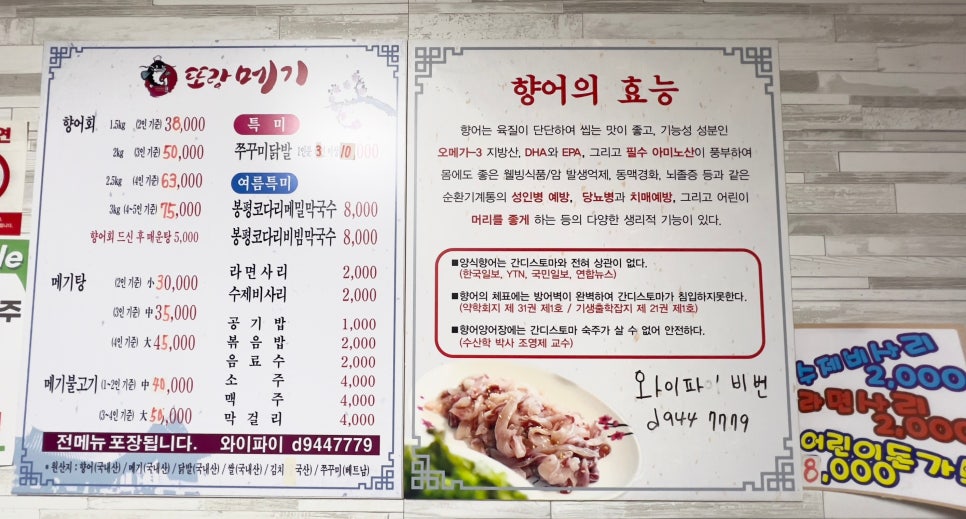 또랑메기
향어회 1.5kg (2인 기준) 38,000
2kg (3인 기준) 50,000
2.5kg (4인 기준) 63,000
3kg (4~5인 기준) 75,000
향어회 드신 후 매운탕 5,000
메기탕 (2인 기준) 小 30,000
(3인 기준) 中 35,000
(4인 기준) 大 45,000
메기불고기 (1~2인 기준) 中 40,000
(3~4인 기준) 大 50,000
특 미
쭈꾸미닭발
여름특미
봉평코다리메밀막국수 8,000
봉평코다리비빔막국수 8,000
라면사리 2,000
수제비사리 2,000
공기밥 1,000
볶음밥 2,000
음료수 2,000
소주 4,000
맥주 4,000
막걸리 4,000
전메뉴 포장됩니다. 와이파이 d9447779
원산지 : 향어(국내산) / 메기(국내산) / 닭발(국내산) / 쌀(국내산) / 김치 국산) / 쭈꾸미(베트남)
향어의 효능
향어는 육질이 단단하여 씹는 맛이 좋고, 기능성 성분인
오메가-3 지방산, DHA와 EPA, 그리고 필수 아미노산이 풍부하여
몸에도 좋은 웰빙식품/암 발생억제, 동맥경화, 뇌졸증 등과 같은
순환기계통의 성인병 예방, 당뇨병과 치매예방, 그리고 어린이
머리를 좋게 하는 등의 다양한 생리적 기능이 있다.
■양식향어는 간디스토마와 전혀 상관이 없다.
(한국일보, YTN, 국민일보, 연합뉴스)
■향어의 체표에는 방어벽이 완벽하여 간디스토마가 침입하지못한다.
(약학회지 제 31권 제1호 / 기생충학잡지 제 21권 제1호)
■향어양어장에는 간디스토마 숙주가 살 수 없어 안전하다.
(수산학 박사 조영제 교수)
와이파이 비번
d944 7779
수제비사리
2,000
라면사리
2,000
어린이돈가
8,000
연
le
주